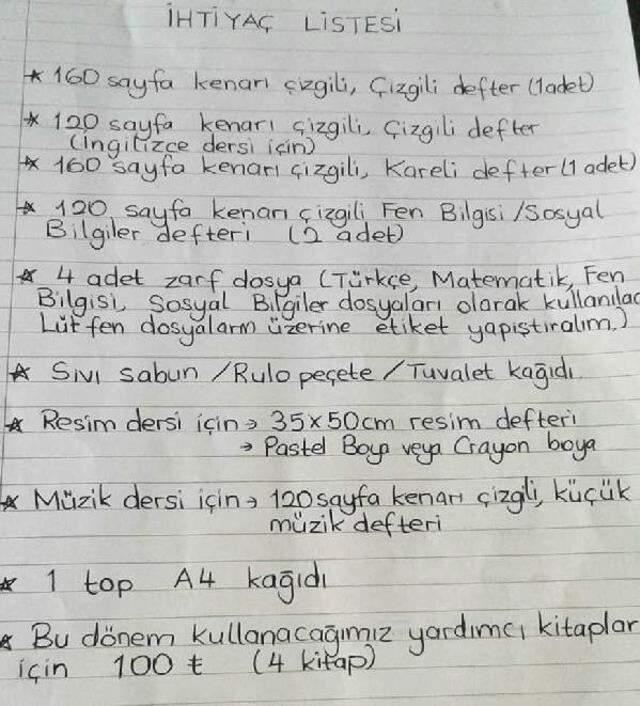 İHTİYAÇ LİSTESİ
* 160 sayfa kenarı çizgili, Çizgili defter (1adet)
* 120 sayfa kenarı çizgili, Çizgili defter
(İngilizce dersi için)
* 160 sayfa kenarı çizgili, Kareli defter (1 adet)
* 120 sayfa kenarı çizgili Fen Bilgisi /Sosyal
Bilgiler defteri (2 adet)
* 4 adet zarf dosya (Türkçe, Matematik, Fen
Bilgisi, Sosyal Bilgiler dosyaları olarak kullanılac
Lütfen dosyaların üzerine etiket yapıştıralım.)
* Sıvı sabun /Rulo peçete /Tuvalet kağıdı
* Resim dersi için → 35x50cm resim defteri
→ Pastel Boya veya Crayon boya
* Müzik dersi için → 120 sayfa kenarı çizgli, küçük
müzik defteri
* 1 top A4 kağıdı
* Bu dönem kullanacağımız yardımcı kitaplar
için 100 ₺ (4 kitap)